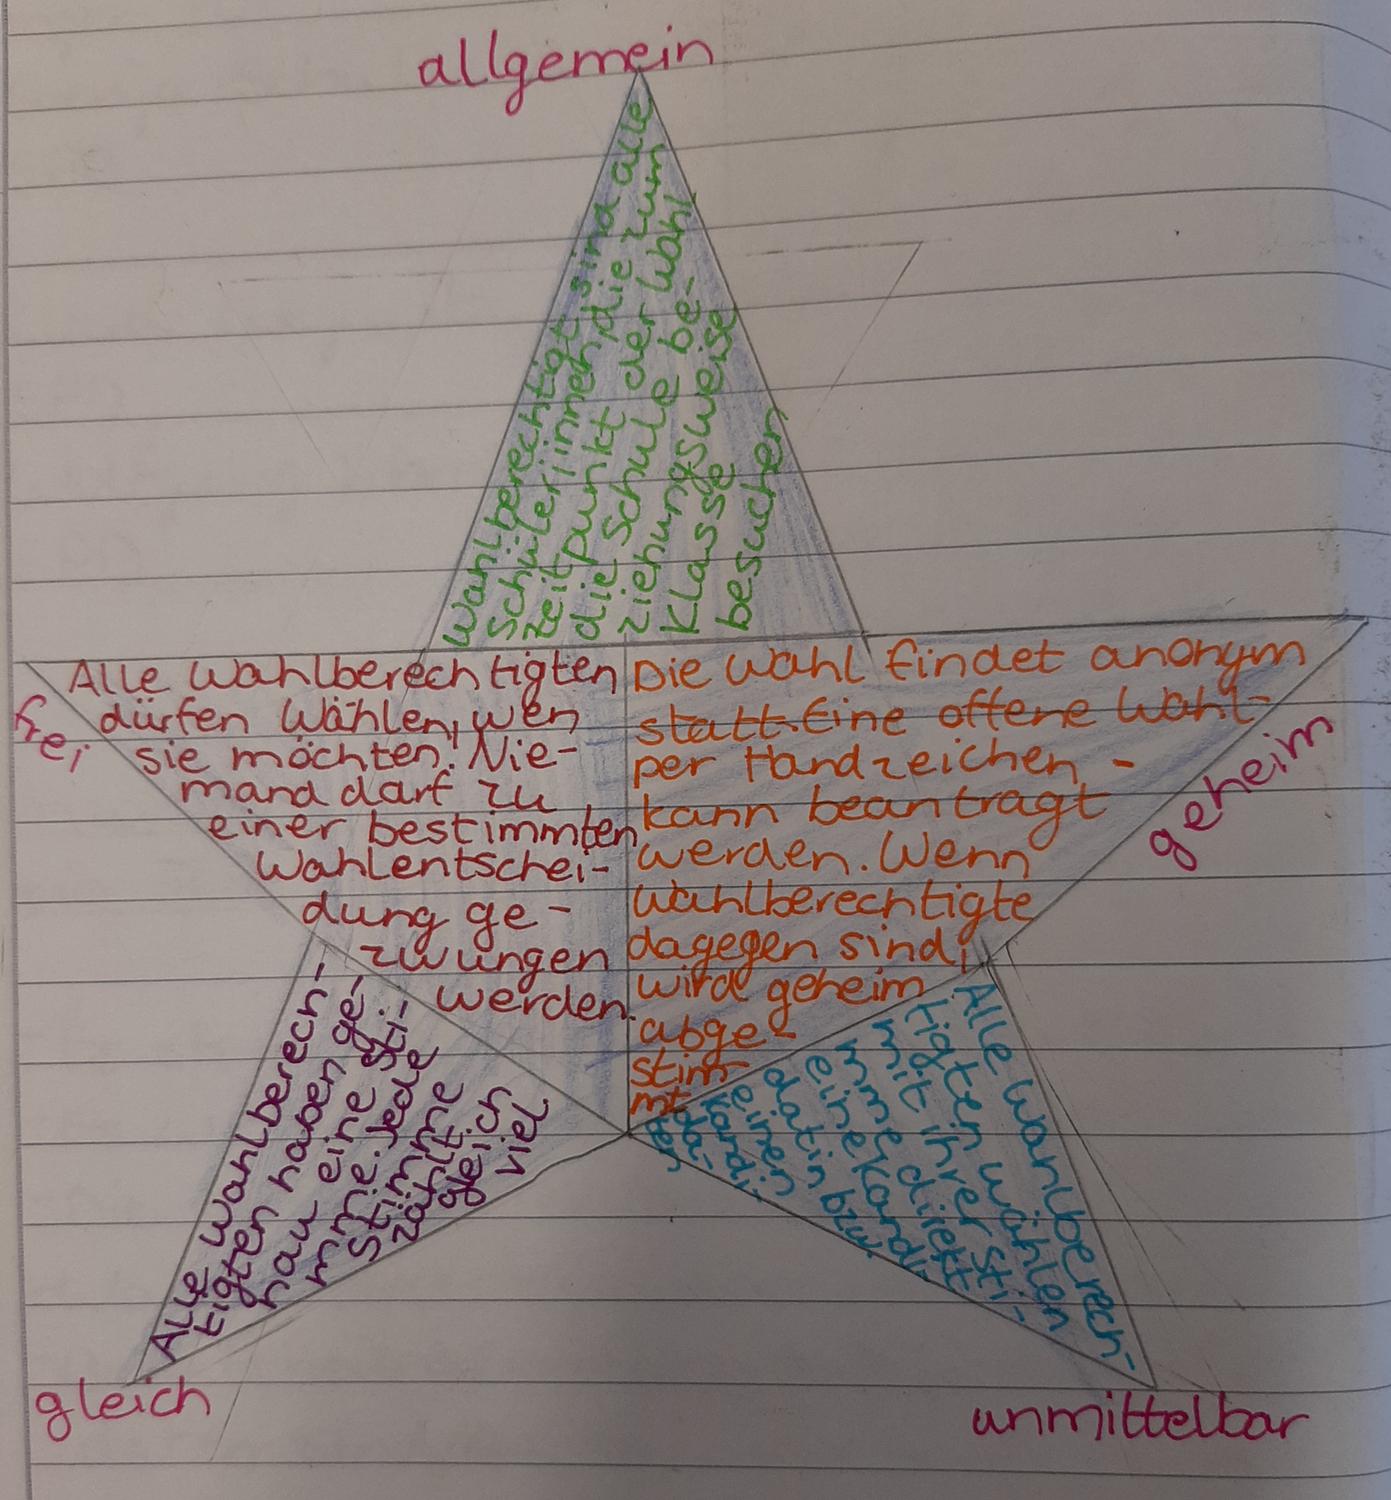 allgemein
Wahlberechtigt sind alle
Schüler innen, die zum
Zeitpunkt der Wahl
die Schule be-
ziehungsweise
Klasse
besuchen
frei
Alle Wahlberechtigten
dürfen Wählen, wen
sie möchten! Nie-
mand darf zu
einer bestimmten
Wahlentschei-
dung ge-
zwungen
werden.
geheim
Die Wahl findet anonym
statt. Eine offene Wahl-
per Handzeichen -
kann beantragt
werden. Wenn
Wahlberechtigte
dagegen sind,
wird geheim
abge-
stimm
mt
gleich
Alle Wahlberech-
tigten haben ge-
nau eine Sti-
mme. Jede
Stimme
zählt
gleich
viel
unmittelbar
Alle Wahlberech-
tigten wählen
mit ihrer Sti-
mme direkt
eine Kandi
datin bzw.
einen
Kandi-
da-
ten